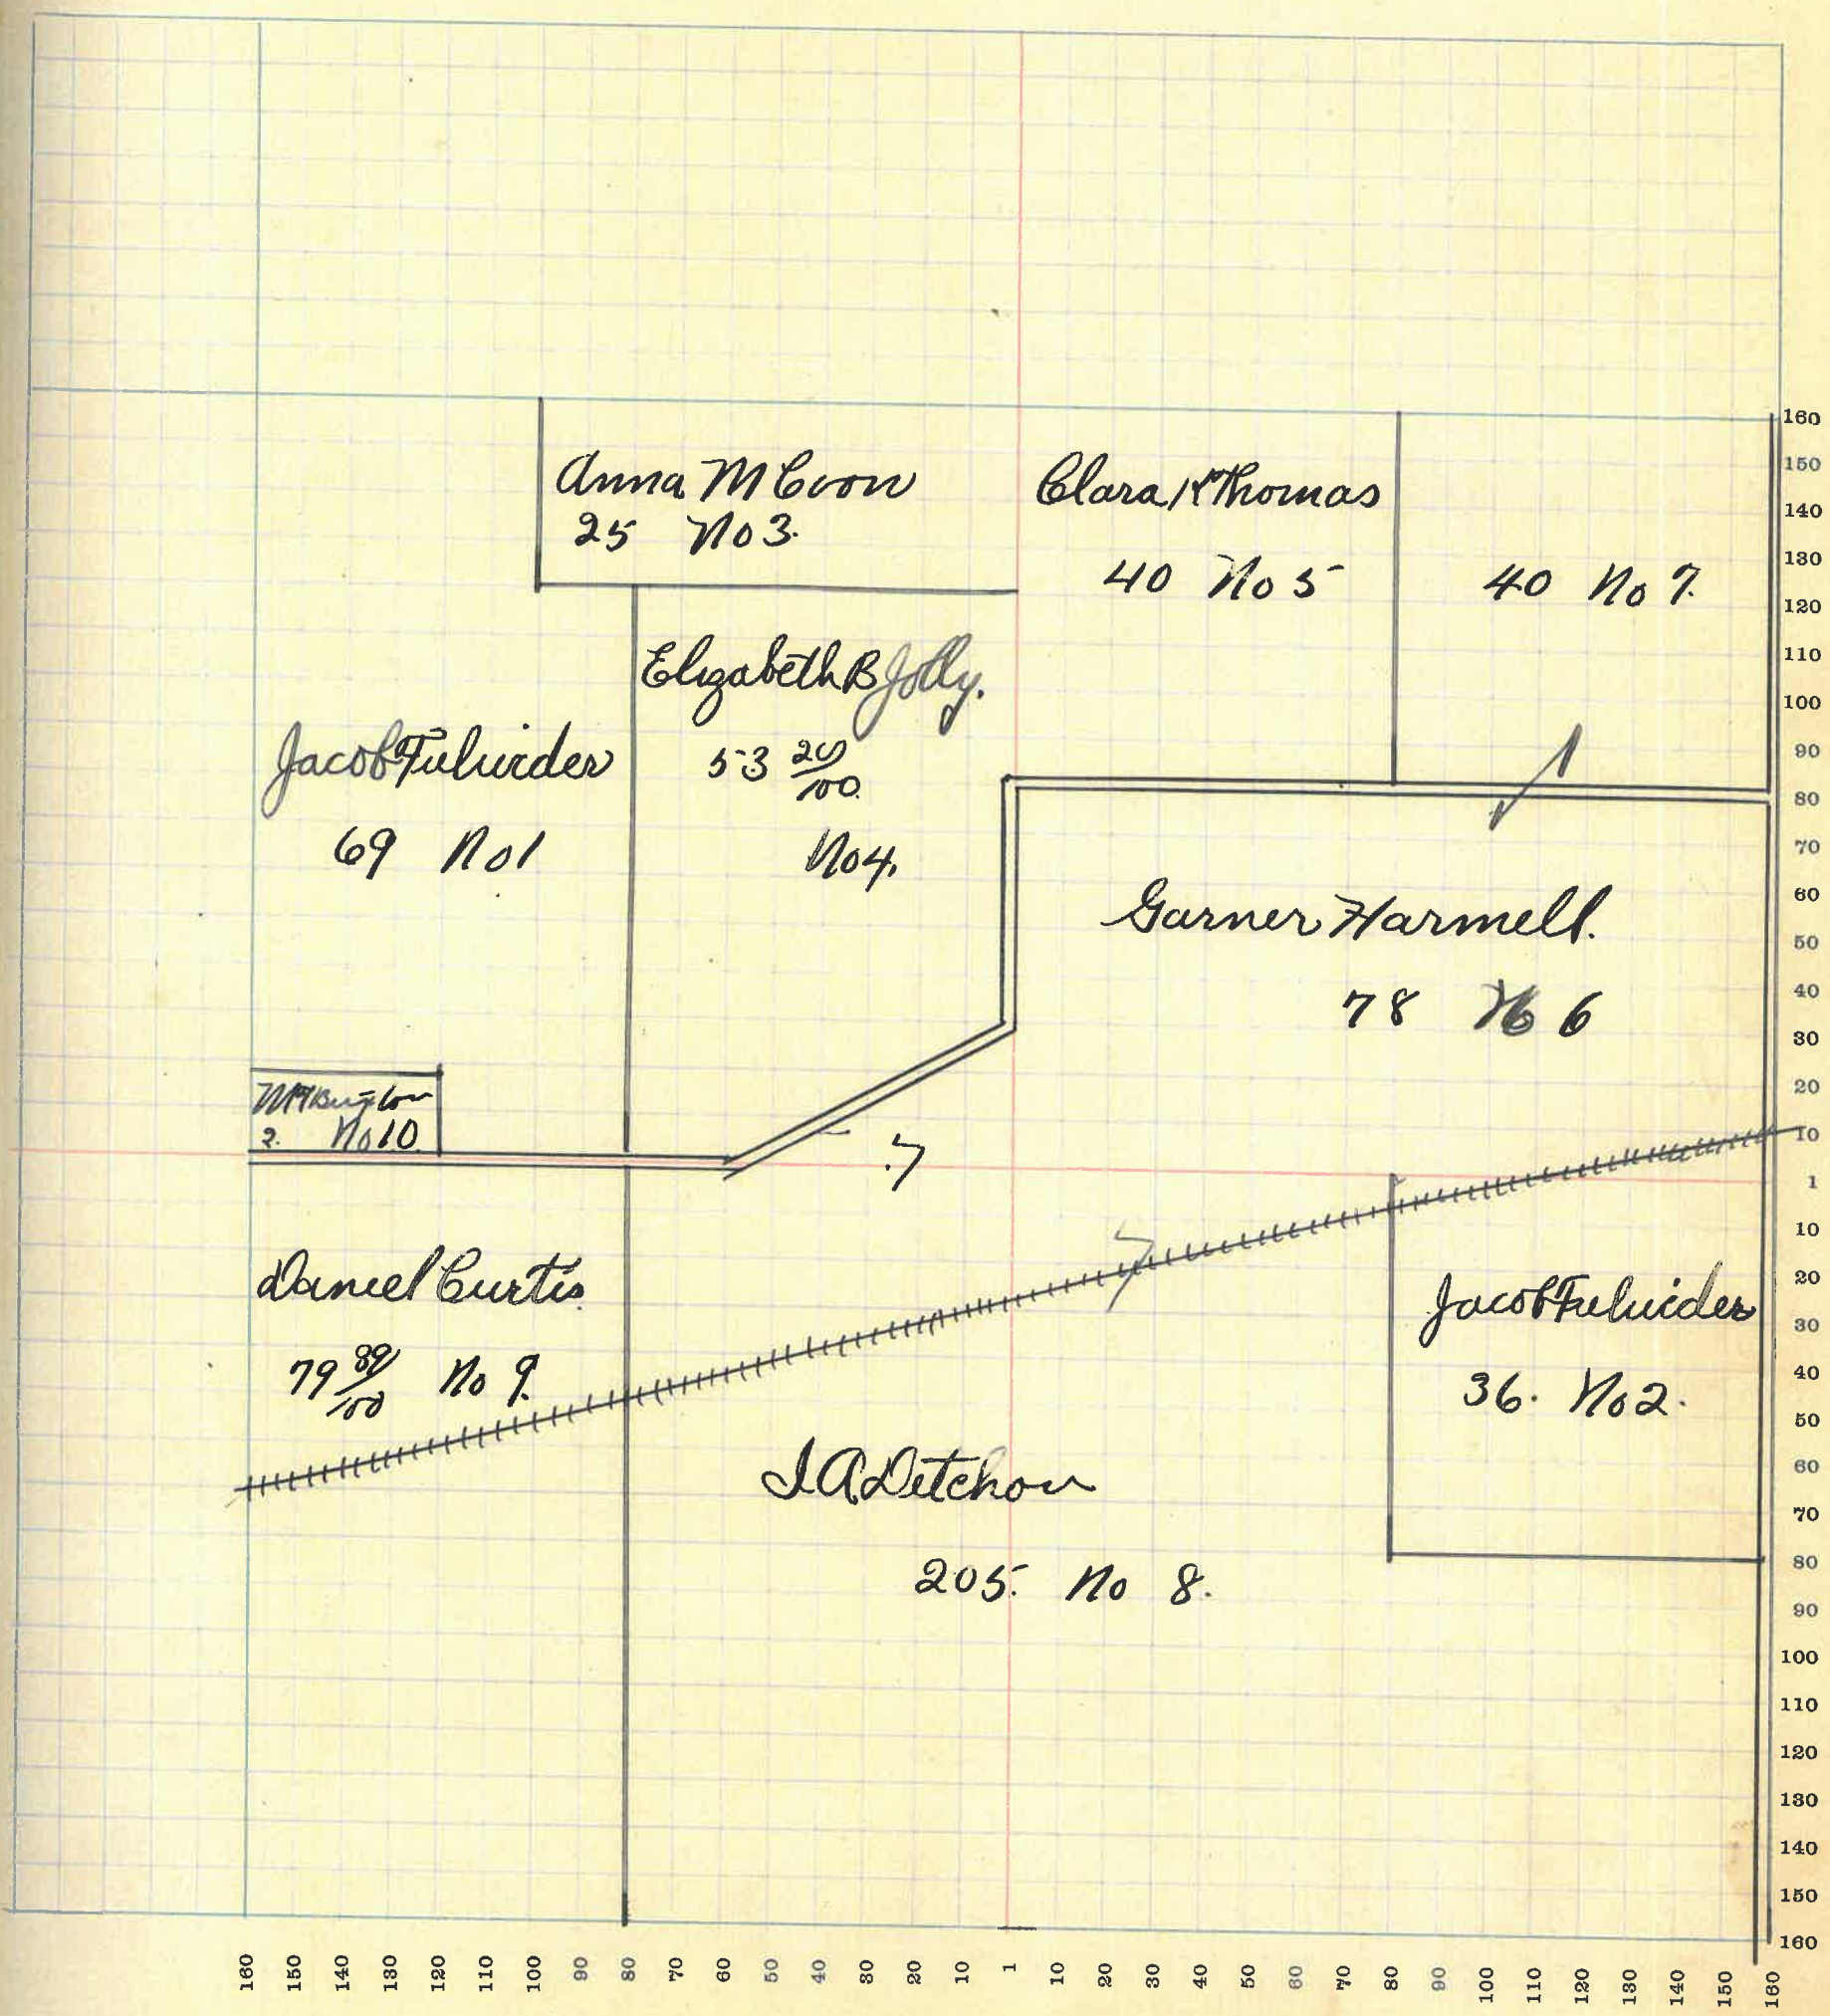 Anna M Coon
25 No 3.
Clara K Thomas
40 No 5
40 No 7.
Elizabeth B Jolly.
53 20/100
No 4.
Jacob Fulwider
69 No 1
Garner Harmell.
78 No 6
2. No 10.
.7
Daniel Curtis
79 89/100 No 9.
Jacob Fulwider
36. No 2.
I A Detchon
205. No 8.
160
150
140
130
120
110
100
90
80
70
60
50
40
30
20
10
1
10
20
30
40
50
60
70
80
90
100
110
120
130
140
150
160
160 150 140 130 120 110 100 90 80 70 60 50 40 30 20 10 1 10 20 30 40 50 60 70 80 90 100 110 120 130 140 150 160